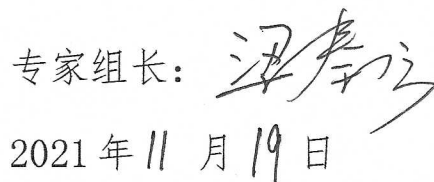 专家组长：
2021年11月19日